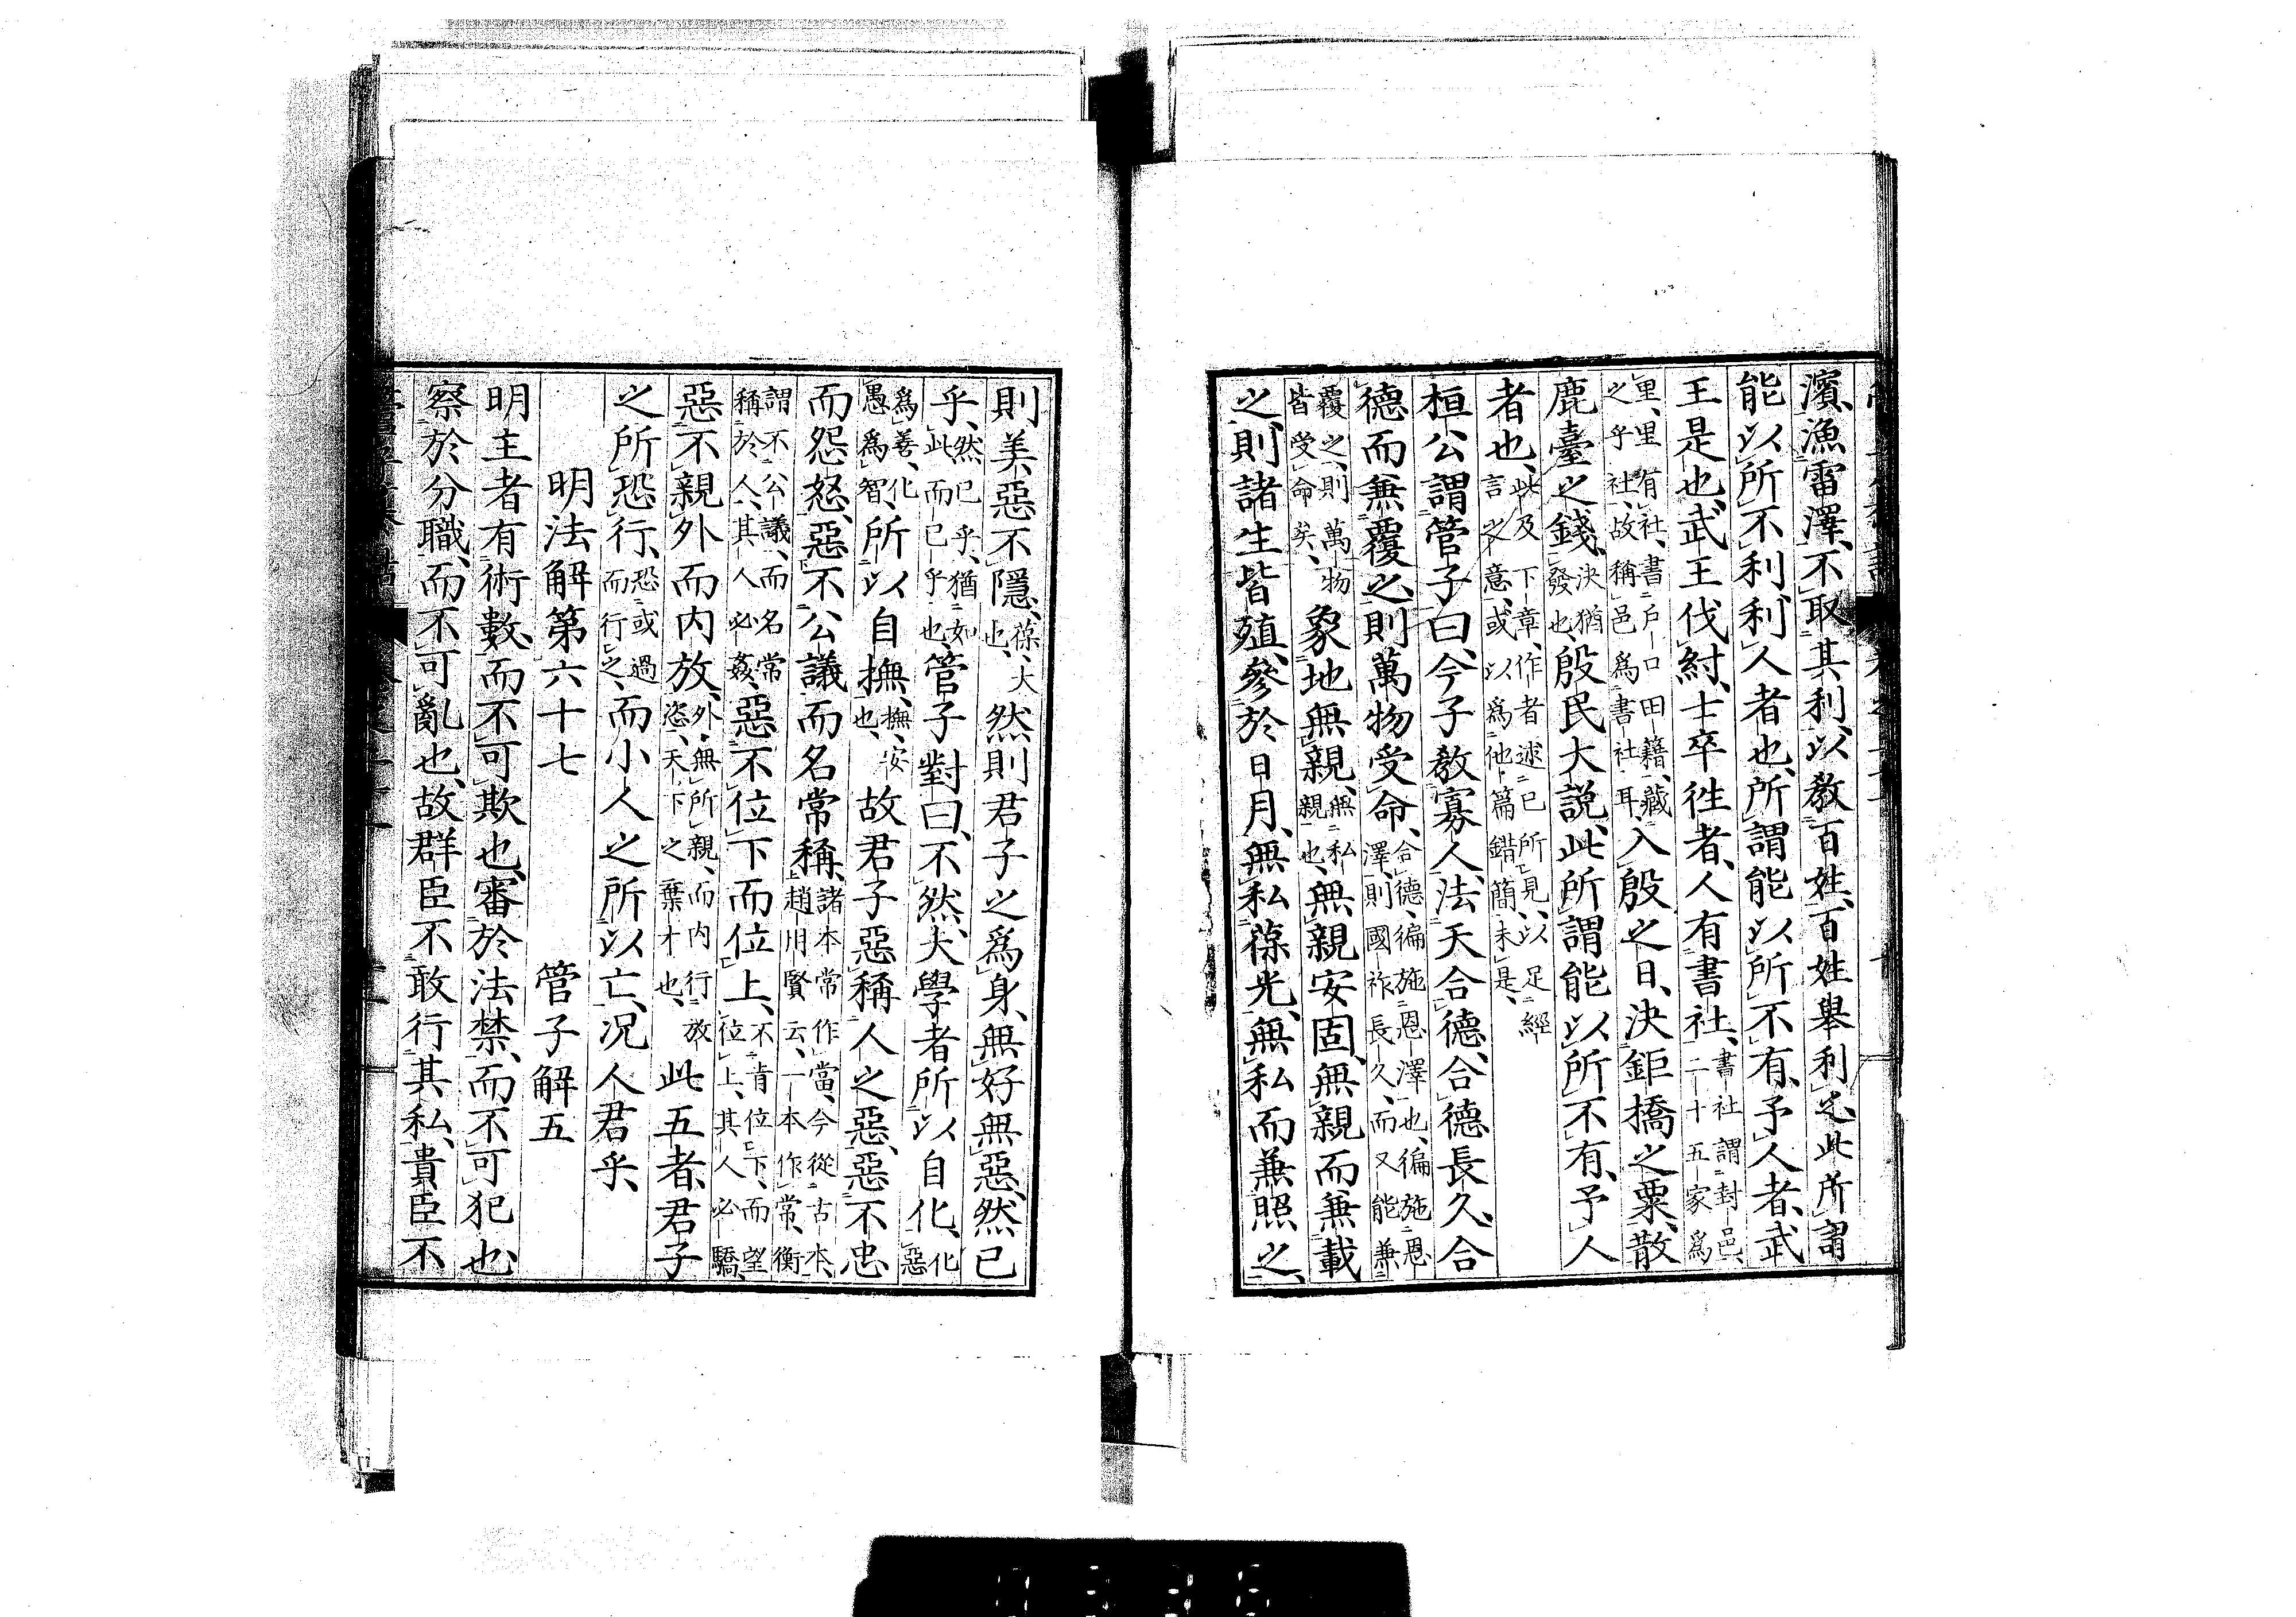 濱、漁雷澤、不取其利、以敎百姓、百姓舉利之、此所謂
能以所不利利人者也、所謂能以所不有予人者、武
王是也、武王伐紂、士卒徃者、人有書社、書社謂封邑、二十五家爲
里、里有社、書戶口田籍、藏之乎社、故稱邑爲書社耳、入殷之日、決鉅橋之粟、散
鹿臺之錢、決猶發也、殷民大說、此所謂能以所不有予人
者也、此及下章、作者述已所見、以足經言之意、或以爲他篇錯簡未是、
桓公謂管子曰、今子敎寡人、法天合德、合德長久、合
德而兼覆之、則萬物受命、合德、徧施恩澤也、徧施恩澤、則國祚長久、而又能兼
覆之、則萬物皆受命矣、象地無親、無私親也、無親安固、無親而兼載
之、則諸生皆殖、參於日月、無私葆光、無私而兼照之、
則美惡不隱、葆、大也、然則君子之爲身、無好無惡、然已
乎、然已乎、猶如此而已乎也、管子對曰、不然、夫學者所以自化、化惡
爲善、化愚爲智、所以自撫、撫、安也、故君子惡稱人之惡、惡不忠
而怨怒、惡不公議而名常稱、諸本常作當、今從古本、趙用賢云、一本作常、衡
謂不公議、而名常稱於人、其人必姦、惡不位下而位上、不肯位下、而望位上、其人必驕、
惡不親外而内放、外無所親、而内行放恣、天下之棄才也、此五者、君子
之所恐行、恐或過而行之、而小人之所以亡、况人君乎、
明法解第六十七　管子解五
明主者有術數、而不可欺也、審於法禁、而不可犯也、
察於分職、而不可亂也、故群臣不敢行其私、貴臣不